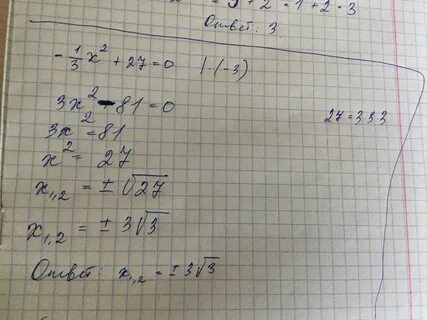 = 3 + 2 = 1 + 2 = 3
Ответ: 3
-1/3 x² + 27 = 0 |·(-3)
3x² - 81 = 0
27 = 3 3 3
3x² = 81
x² = 27
x₁,₂ = ± √27
x₁,₂ = ± 3√3
Ответ: x₁,₂ = ± 3√3